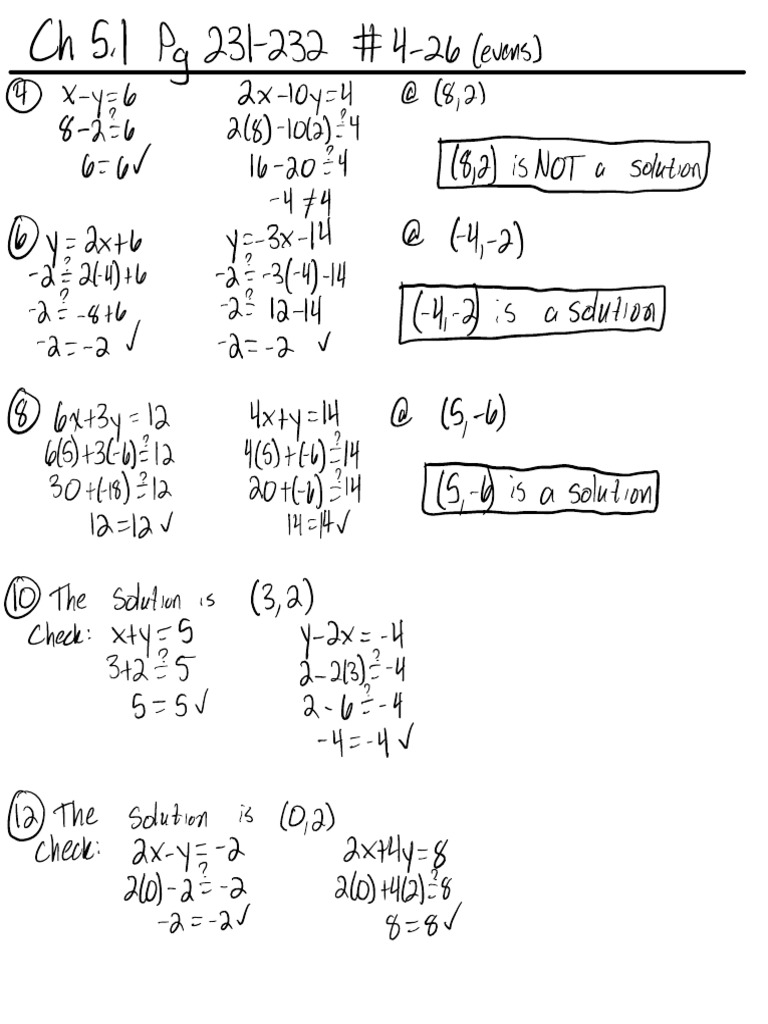 Ch 5.1 Pg 231-232 # 4-26 (evens)
④ x-y=6 2x-10y=4 @ (8,2)
8-2≟6 2(8)-10(2)≟4
6=6✓ 16-20≟4 (8,2) is NOT a solution
-4≠4
⑥ y=2x+6 y=-3x-14 @ (-4,-2)
-2≟2(-4)+6 -2≟-3(-4)-14
-2≟-8+6 -2≟12-14 (-4,-2) is a solution
-2=-2 ✓ -2=-2 ✓
⑧ 6x+3y=12 4x+y=14 @ (5,-6)
6(5)+3(-6)≟12 4(5)+(-6)≟14
30+(-18)≟12 20+(-6)≟14 (5,-6) is a solution
12=12✓ 14=14✓
⑩ The solution is (3,2)
Check: x+y=5 y-2x=-4
3+2≟5 2-2(3)≟-4
5=5✓ 2-6≟-4
-4=-4✓
⑫ The solution is (0,2)
Check: 2x-y=-2 2x+4y=8
2(0)-2≟-2 2(0)+4(2)≟8
-2=-2✓ 8=8✓